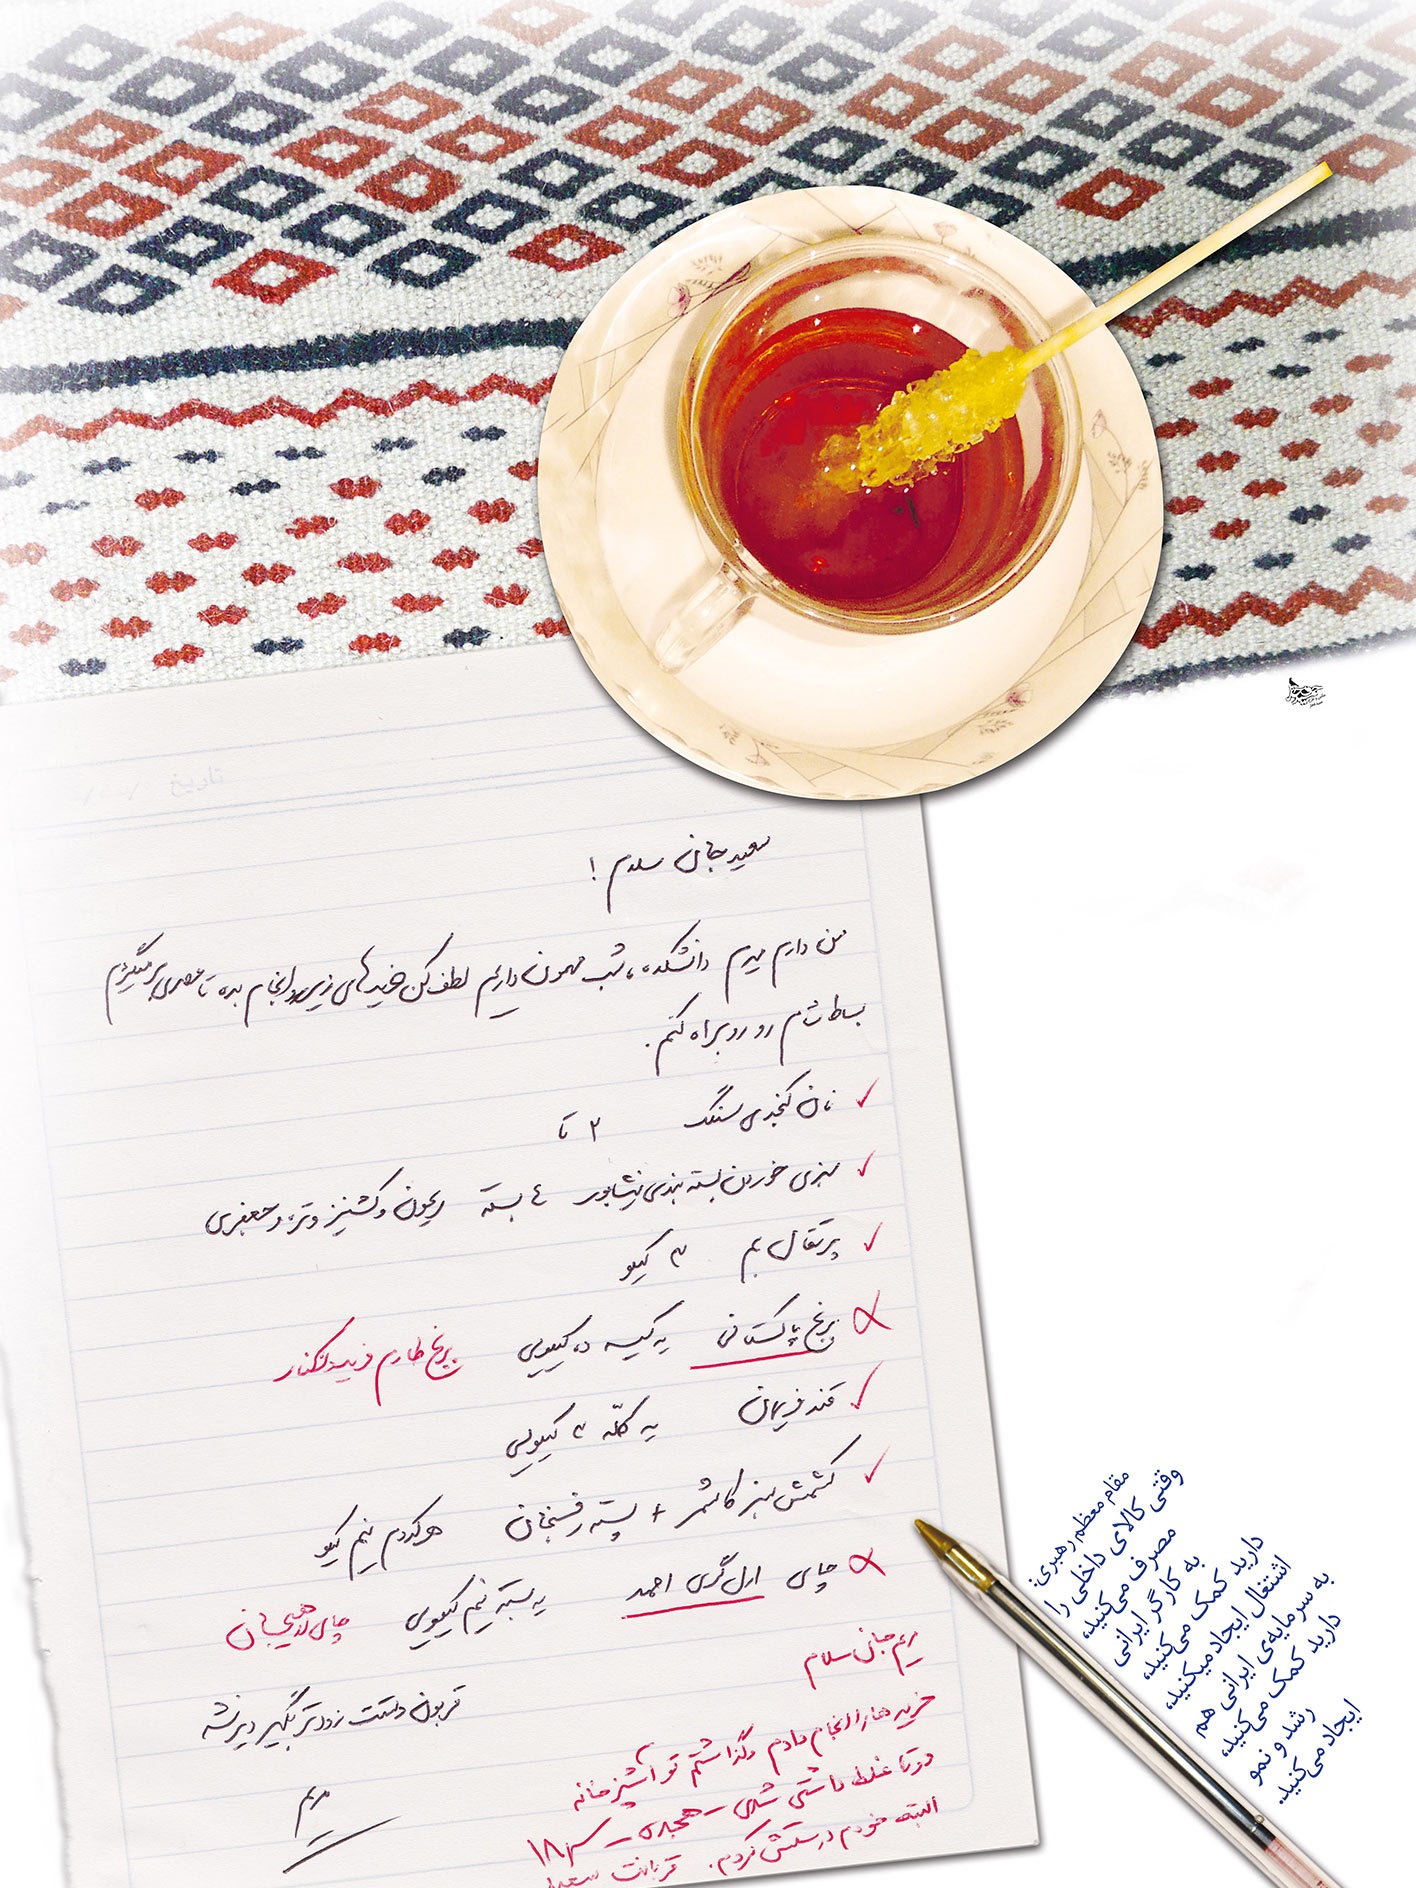 تاریخ
سعید جان سلام !
من دارم میرم دانشکده، شب مهمون داریم لطف کن خریدهای زیر رو انجام بده تا عصری برمیگردم
بساط شام رو روبراه کنم.
نان کنجدی سنگک ۲ تا
سبزی خوردن بسته بندی نیشابور ٤ بسته ریحون و گشنیز و تره و جعفری
پرتقال بم ۳ کیلو
برنج پاکستانی یه کیسه ده کیلویی برنج طارم فریدونکنار
قند فریمان یه کلّه ۲ کیلویی
کشمش سبز کاشمر + پسته رفسنجان هرکدوم نیم کیلو
چای ارل گری احمد یه بسته نیم کیلویی چای لاهیجان
قربون دستت زودتر بگیر دیر نشه
مریم
مریم جان سلام
خریدها را انجام دادم و گذاشتم تو آشپزخانه
دوتا غلط داشتی شدی هجده ۱۸
البته خودم درستش کردم. قربانت سعید
مقام معظم رهبری:
وقتی کالای داخلی را
مصرف می‌کنید،
به کارگر ایرانی
دارید کمک می‌کنید،
اشتغال ایجاد میکنید،
به سرمایه‌ی ایرانی هم
دارید کمک می‌کنید،
رشد و نمو
ایجاد می‌کنید.